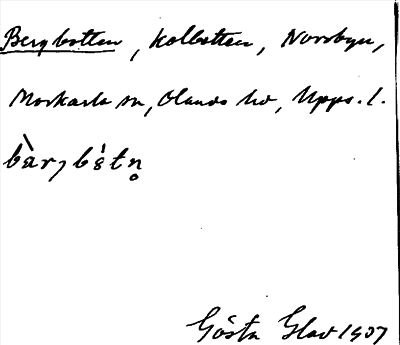 Bergbotten, Kolbotten, Norrbyn,
Morkarla sn, Olands hd, Upps. l.
bàrjbòtn̥
Gösta Glad 1907